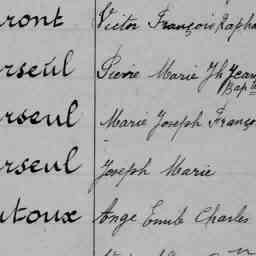 ront Victor François Rapha
rseul Pierre Marie Jh Jean
Bapte
rseul Marie Joseph Franço
rseul Joseph Marie
utoux Ange Emile Charles